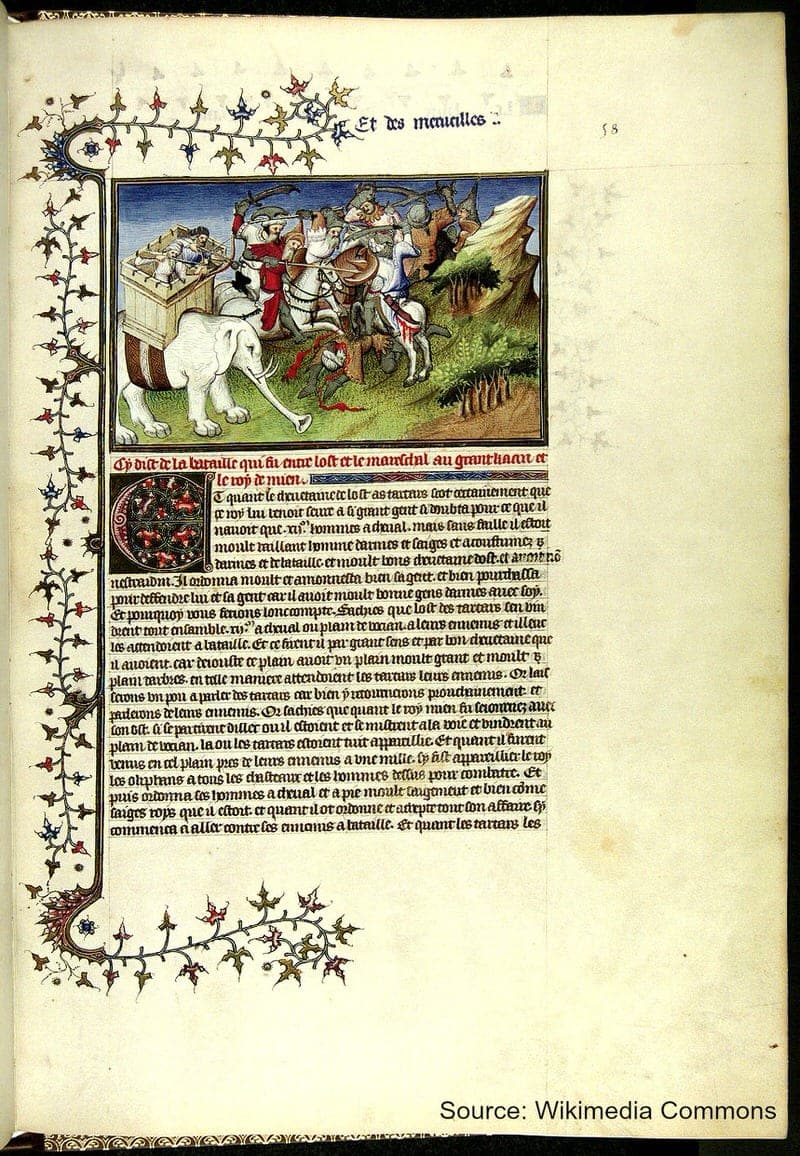 Et des merueilles
58
Cy dist de la bataille qui fu entre lost et le mareschal au grant kaan et
le roy de mien.
Et quant le cheuetaine de lost as tartars scot certainement que
ce roy lui venoit seure a si grant gent si doubta pour ce que il
nauoit que .xij. hommes a cheual. mais sans faille il estoit
moult vaillant homme darmes et saiges et acoustumez
darmes et de bataille et moult bons cheuetaine dost. et auoit nõ
nestradin. Il ordonna moult et amonnesta bien sa gent. et bien pourchassa
pour deffendre lui et sa gent car il auoit moult bonne gens darmes auec soy.
Et pourquoy vous feroies lonc compte. Sachies que lost des tartars sen vin
drent tout ensamble .xij. a cheual ou plain de vocian. a leurs ennemis et illeuc
les attendoient a bataille. Et ce firent il par grant sens et par bon cheuetaine que
il auoient. car deiouste ce plain auoit vn plain moult grant et moult
plain darbres. en telle maniere attendoient les tartars leurs ennemis. Or lais
serons vn pou a parler des tartars car bien y retournerons prouchainement. et
parlerons de leurs ennemis. Or sachies que quant le roy mien fu seiournez auec
son ost. si se partirent dillec ou il estoient et se mistrent a la voie et vindrent au
plain de vocian. la ou les tartars estoient tuit appareillie. Et quant il furent
venus en cel plain pres de leurs ennemis a vne mille. sy fist appareillier le roy
les oliphans a tous les chasteaux et les hommes dessus pour combatre. Et
puis ordonna ses hommes a cheual et a pie moult saigement et bien cõme
saiges roys que il estoit. et quant il ot ordonne et adrepte tout son affaire. sy
commenca a aller contre ses ennemis a bataille. Et quant les tartars les
Source: Wikimedia Commons